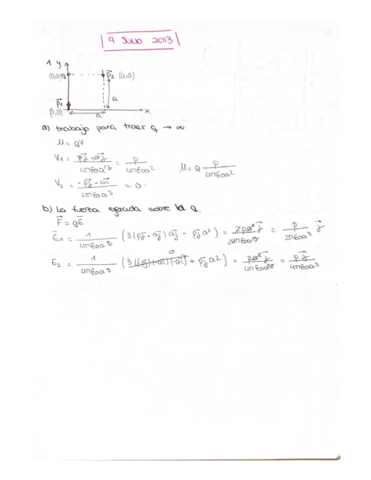 9 Julio 2013
1 y
(0,a) q P₂ (a,a)
a
P₁
(0,0) a x
a) trabajo para traer q → ∞
U = qV
V₁ = pj⃗ · aj⃗ / 4πε₀a³ = p / 4πε₀a² U = q p / 4πε₀a²
V₂ = -pj⃗ · ai⃗ / 4πε₀a³ = 0
b) La fuerza ejercida sobre la q.
F⃗ = qE⃗
E⃗₁ = 1 / 4πε₀a⁵ (3(pj⃗ · aj⃗) aj⃗ - pj⃗ a²) = 2pa²j⃗ / 4πε₀a⁵ = p / 2πε₀a³ j⃗
E₂ = 1 / 4πε₀a⁵ (3((-pj⃗)(-ai⃗))(-ai⃗) + pj⃗ a²) = pa²j⃗ / 4πε₀a⁵ = pj⃗ / 4πε₀a³